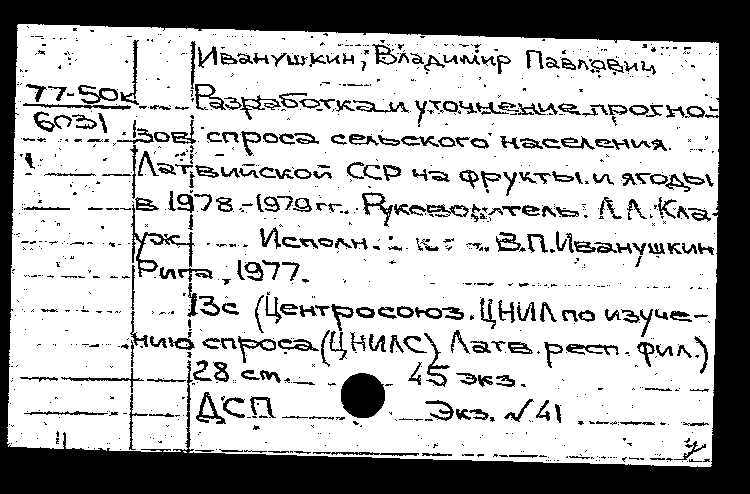 Иванушкин, Владимир Павлович
77-50к
6031
Разработка и уточнение прогно-
зов спроса сельского населения
Латвийской ССР на фрукты и ягоды
в 1978-1979 гг. Руководитель: Л.Л. Кла-
уж Исполн.: В.П. Иванушкин
Рига, 1977.
13с (Центросоюз. ЦНИЛ по изуче-
нию спроса (ЦНИЛС) Латв. респ. фил.)
28 см. 45 экз.
ДСП Экз. №41